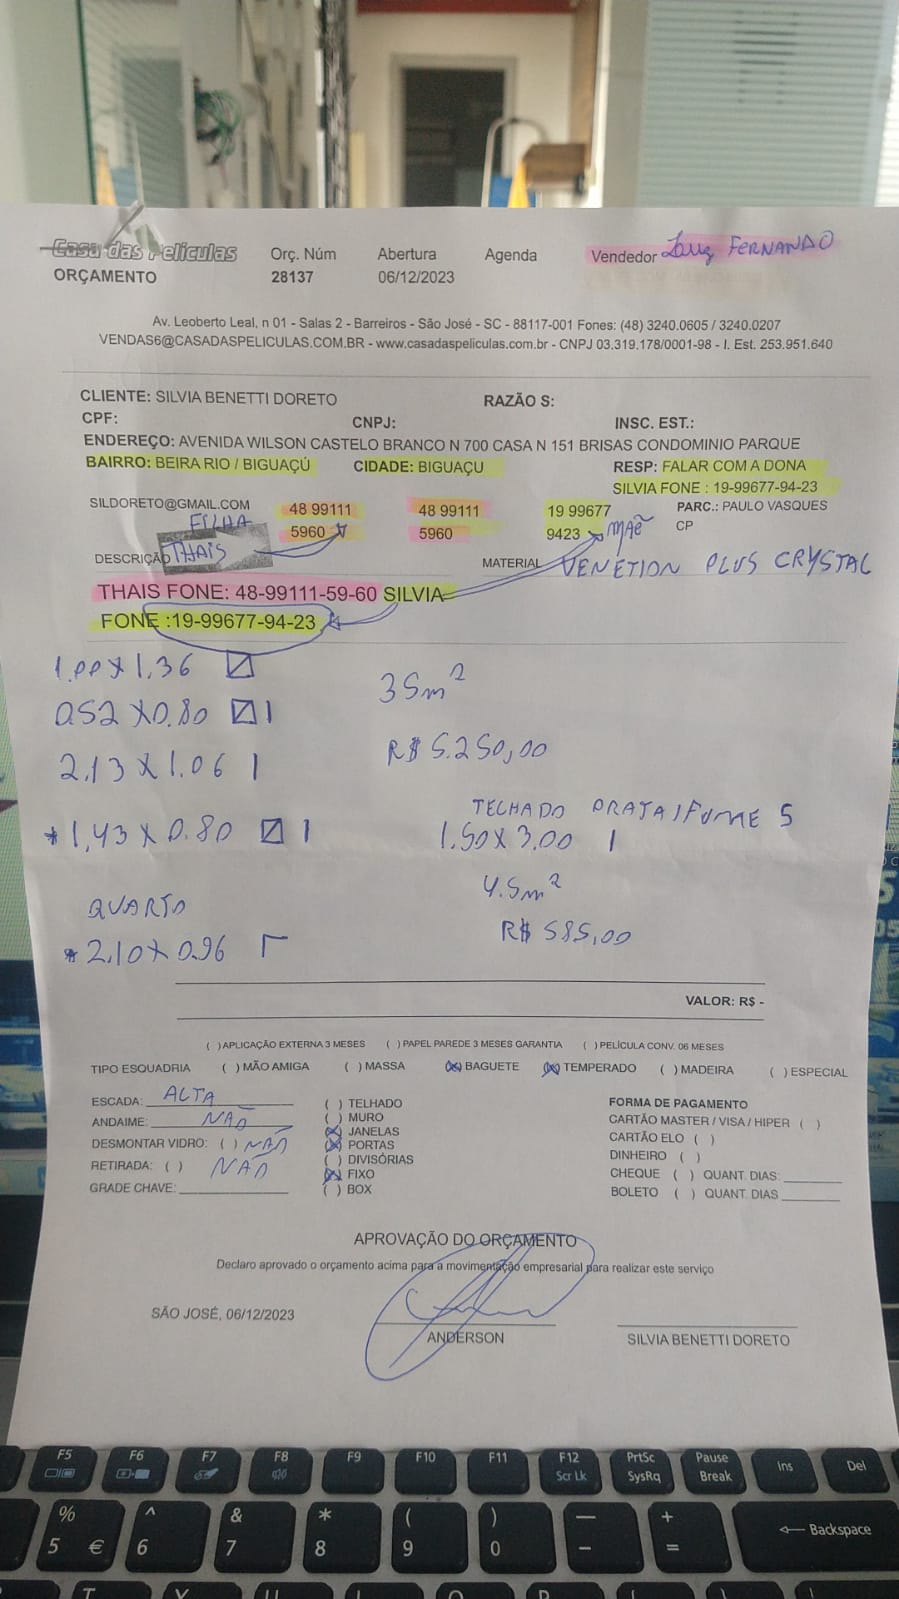 Casa das Películas
ORÇAMENTO
Orç. Núm
28137
Abertura
06/12/2023
Agenda
Vendedor Luiz FERNANDO
Av. Leoberto Leal, n 01 - Salas 2 - Barreiros - São José - SC - 88117-001 Fones: (48) 3240.0605 / 3240.0207
VENDAS6@CASADASPELICULAS.COM.BR - www.casadaspeliculas.com.br - CNPJ 03.319.178/0001-98 - I. Est. 253.951.640
CLIENTE: SILVIA BENETTI DORETO RAZÃO S:
CPF: CNPJ: INSC. EST.:
ENDEREÇO: AVENIDA WILSON CASTELO BRANCO N 700 CASA N 151 BRISAS CONDOMINIO PARQUE
BAIRRO: BEIRA RIO / BIGUAÇÚ CIDADE: BIGUAÇU RESP: FALAR COM A DONA
SILVIA FONE : 19-99677-94-23
SILDORETO@GMAIL.COM 48 99111 48 99111 19 99677 PARC.: PAULO VASQUES
FILHA 5960 5960 9423 MAẼ CP
DESCRIÇÃO THAIS MATERIAL VENETION PLUS CRYSTAL
THAIS FONE: 48-99111-59-60 SILVIA
FONE :19-99677-94-23
1.00 X 1.36
0.52 X 0.80 1
2.13 X 1.06 1
* 1,43 X 0.80 1
QUARTO
* 2.10 X 0.96
35m²
R$ 5.250,00
TECHADO PRATA/FUME 5
1.50 X 3.00 1
4.5m²
R$ 585,00
VALOR: R$ -
( ) APLICAÇÃO EXTERNA 3 MESES ( ) PAPEL PAREDE 3 MESES GARANTIA ( ) PELÍCULA CONV. 06 MESES
TIPO ESQUADRIA ( ) MÃO AMIGA ( ) MASSA (X) BAGUETE (X) TEMPERADO ( ) MADEIRA ( ) ESPECIAL
ESCADA: ALTA
ANDAIME: NÃO
DESMONTAR VIDRO: ( ) NÃO
RETIRADA: ( ) NÃO
GRADE CHAVE:
( ) TELHADO
( ) MURO
(X) JANELAS
(X) PORTAS
( ) DIVISÓRIAS
(X) FIXO
( ) BOX
FORMA DE PAGAMENTO
CARTÃO MASTER / VISA / HIPER ( )
CARTÃO ELO ( )
DINHEIRO ( )
CHEQUE ( ) QUANT. DIAS:
BOLETO ( ) QUANT. DIAS
APROVAÇÃO DO ORÇAMENTO
Declaro aprovado o orçamento acima para a movimentação empresarial para realizar este serviço
SÃO JOSÉ, 06/12/2023
ANDERSON
SILVIA BENETTI DORETO
F5 F6 F7 F8 F9 F10 F11 F12 PrtSc Pause Ins Del
Scr Lk SysRq Break
% ^ & * ( ) — +
5 € 6 7 8 9 0 - = Backspace